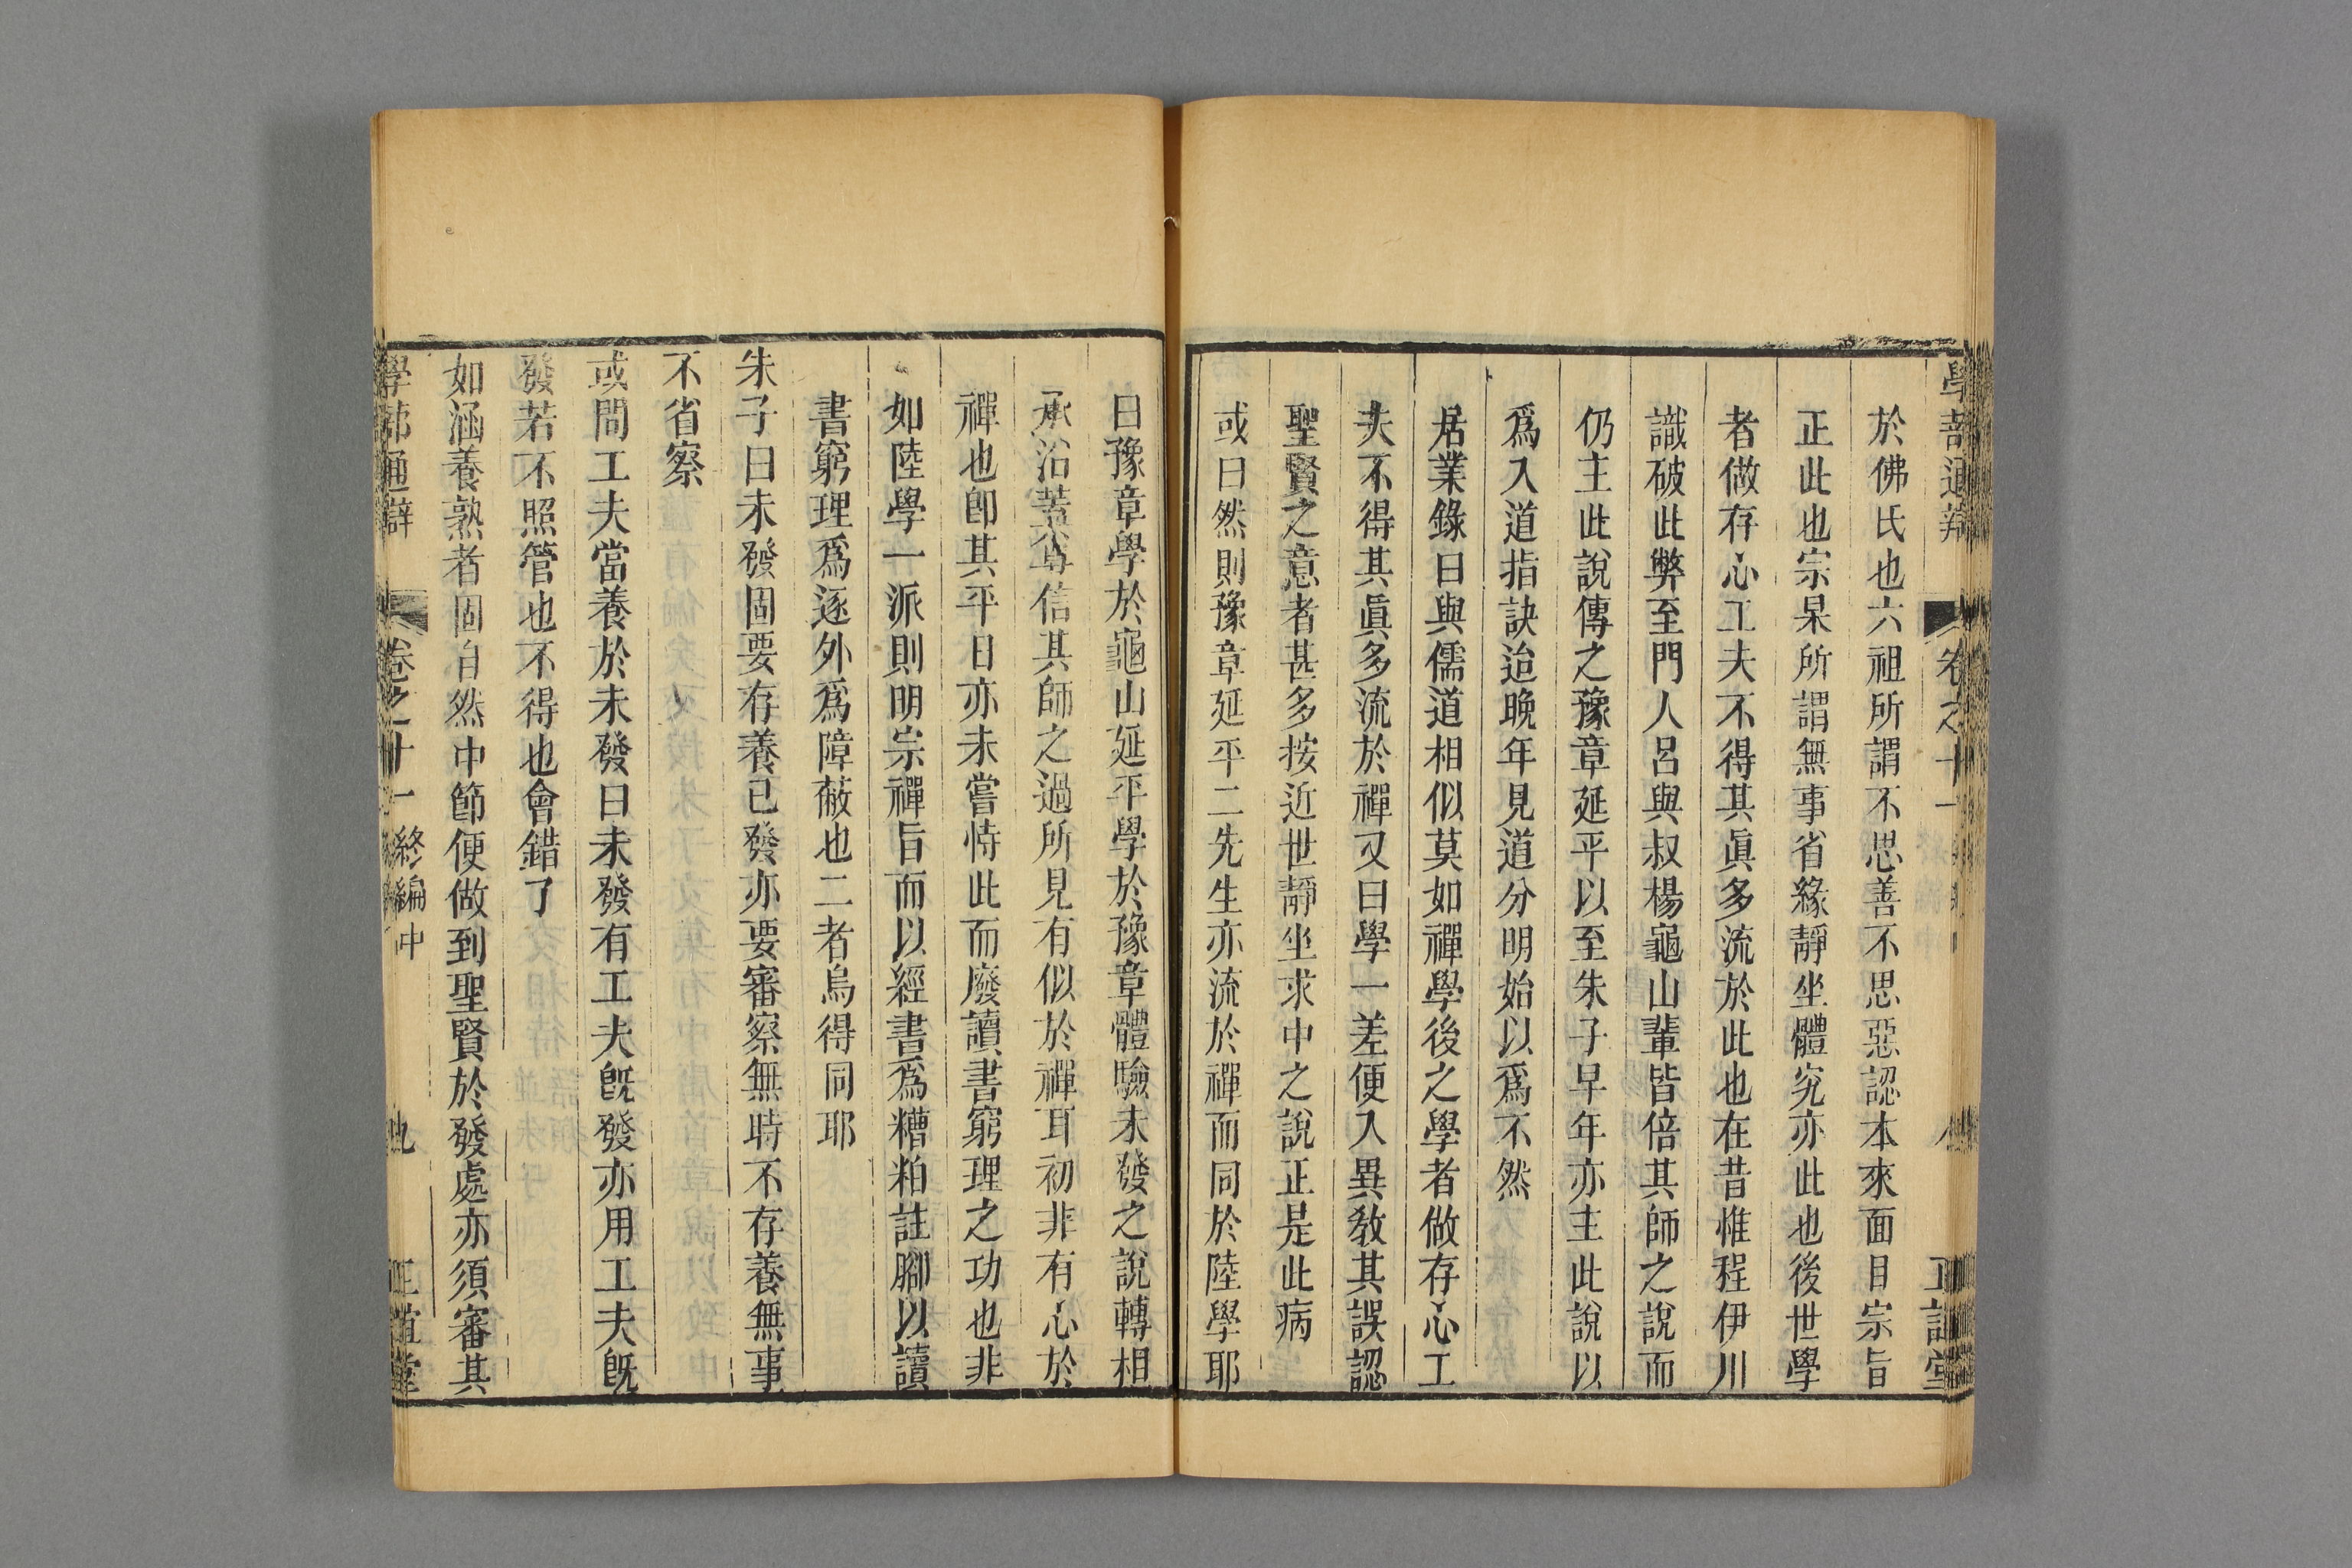 學蔀通辯
卷之十一
正誼堂
於佛氏也六祖所謂不思善不思惡認本來面目宗旨
正此也宗杲所謂無事省緣靜坐體究亦此也後世學
者做存心工夫不得其眞多流於此也在昔惟程伊川
識破此弊至門人呂與叔楊龜山輩皆倍其師之說而
仍主此說傳之豫章延平以至朱子早年亦主此說以
爲入道指訣迨晚年見道分明始以爲不然
居業錄曰與儒道相似莫如禪學後之學者做存心工
夫不得其眞多流於禪又曰學一差便入異敎其誤認
聖賢之意者甚多按近世靜坐求中之說正是此病
或曰然則豫章延平二先生亦流於禪而同於陸學耶
曰豫章學於龜山延平學於豫章體驗未發之說轉相
承沿蓋尊信其師之過所見有似於禪耳初非有心於
禪也卽其平日亦未嘗恃此而廢讀書窮理之功也非
如陸學一派則明宗禪旨而以經書爲糟粕註腳以讀
書窮理爲逐外爲障蔽也二者烏得同耶
朱子曰未發固要存養已發亦要審察無時不存養無事
不省察
或問工夫當養於未發曰未發有工夫旣發亦用工夫旣
發若不照管也不得也會錯了
如涵養熟者固自然中節便做到聖賢於發處亦須審其
學蔀通辯
卷之十一
終編中
九
正誼堂